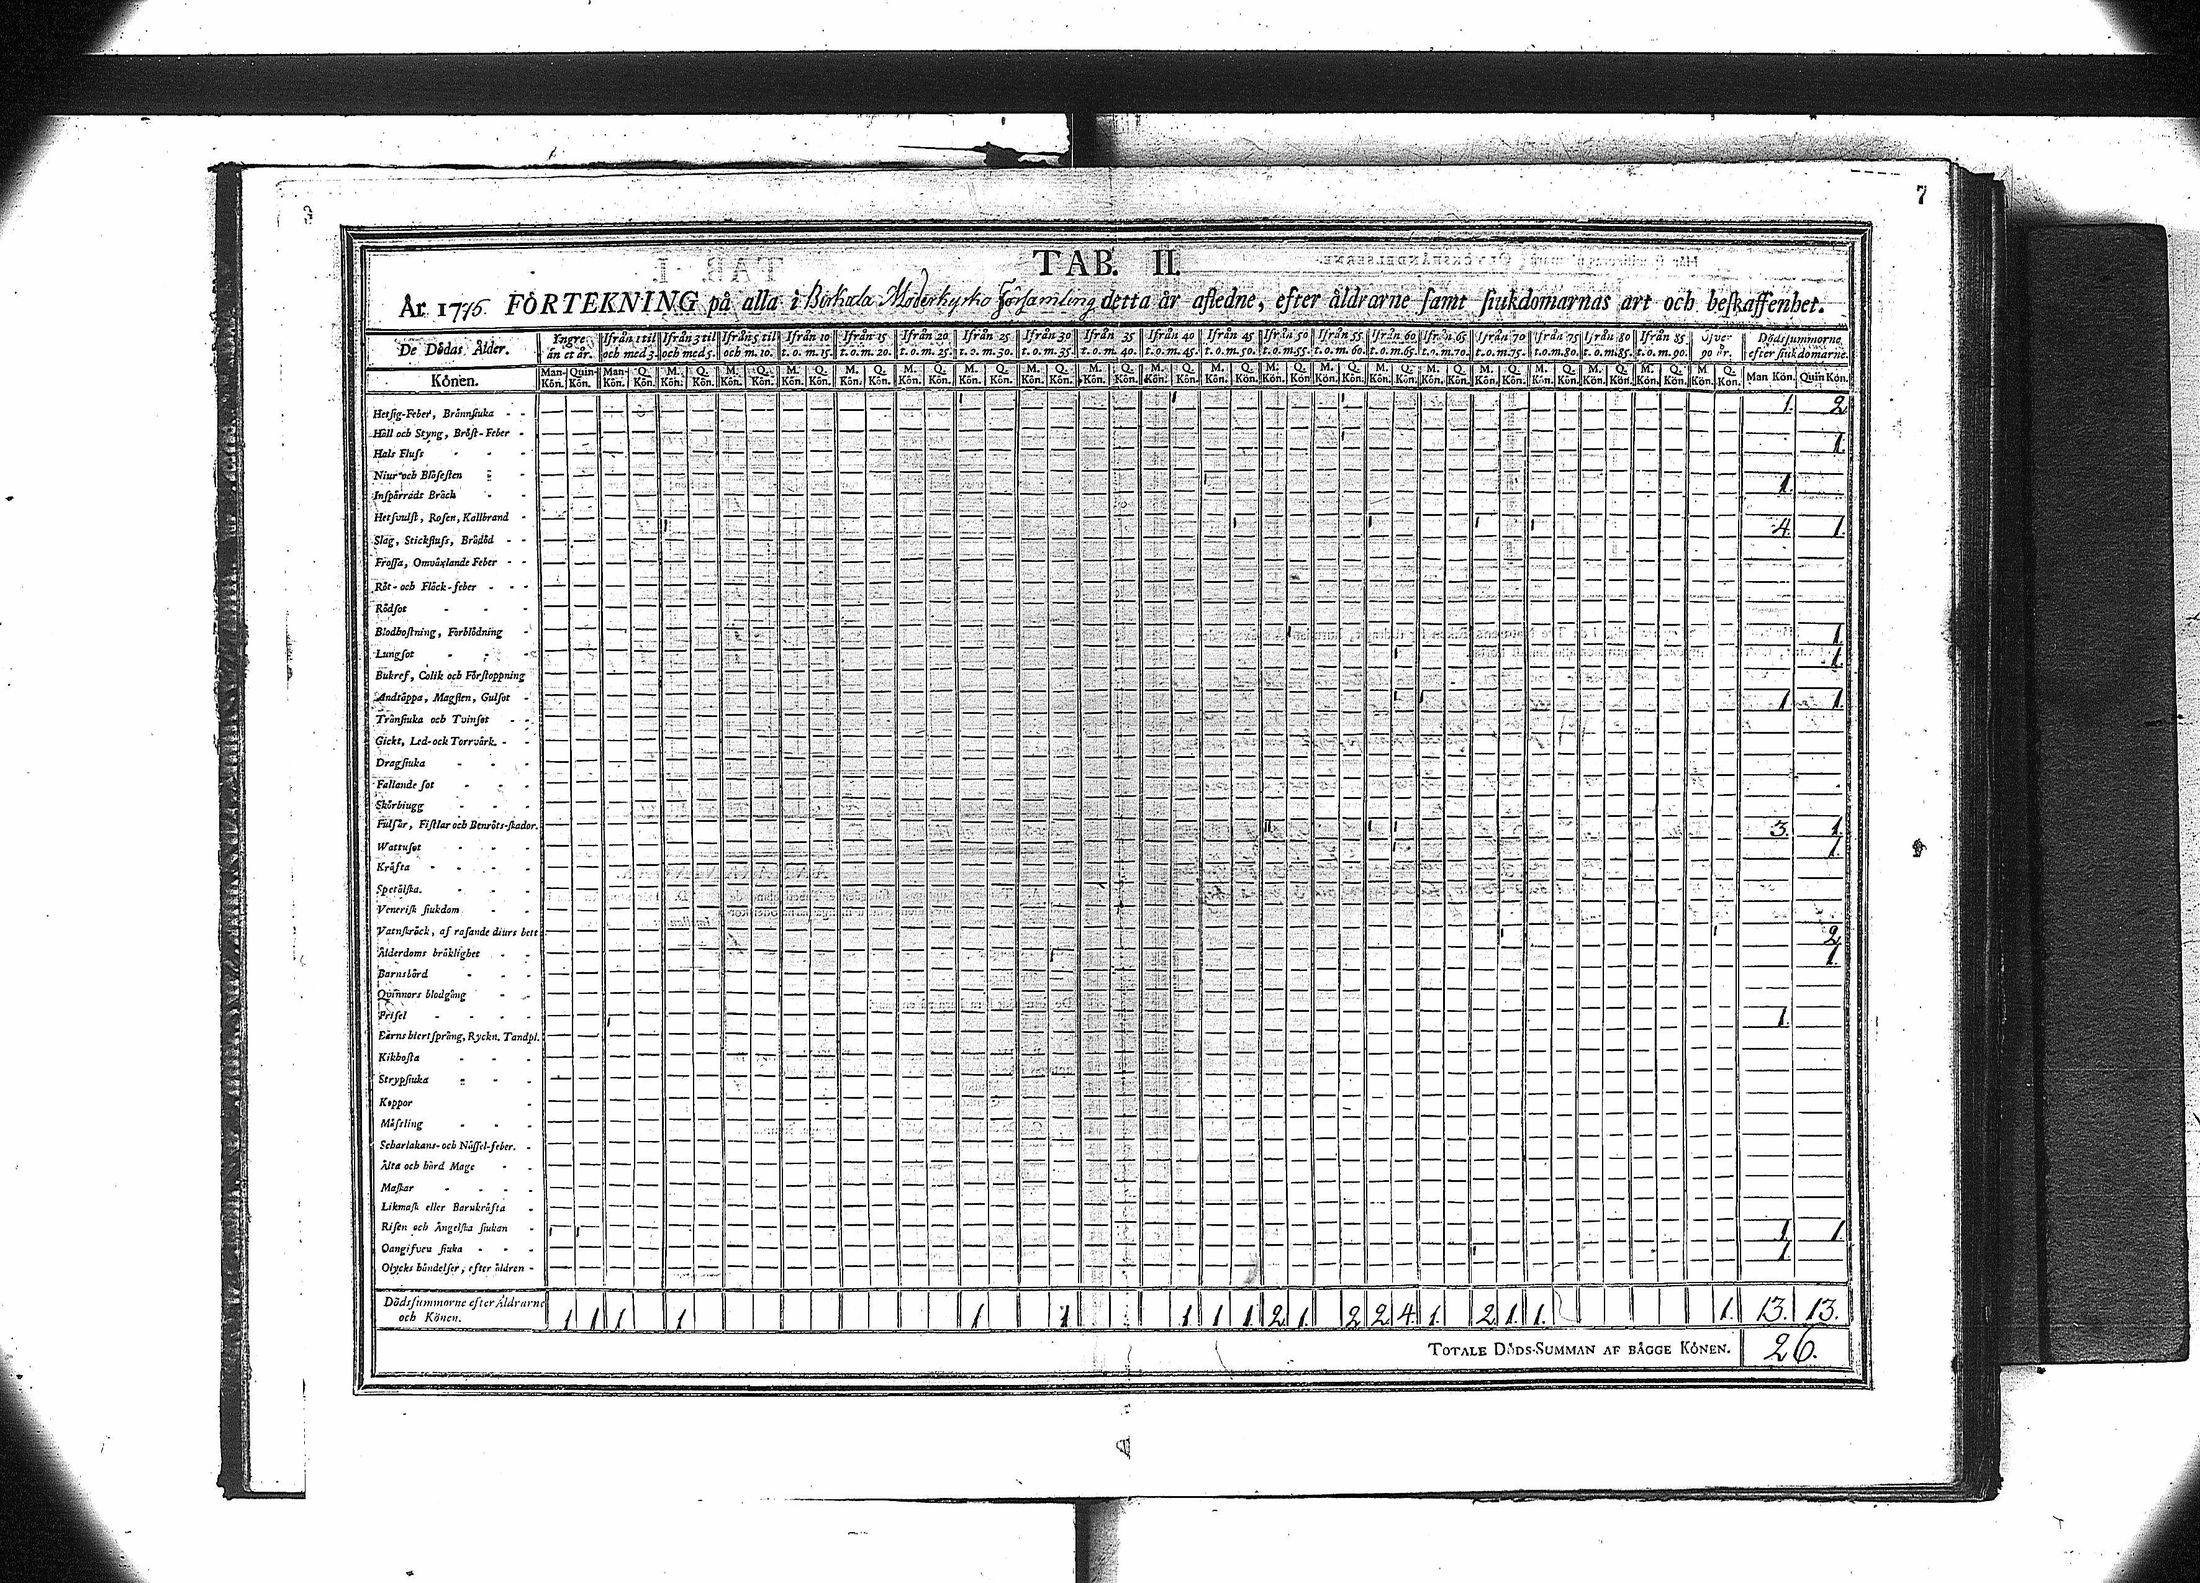 7
TAB. II.
År 1775. FÖRTEKNING på alla i Birkala Moderkyrko Församling detta år afledne, efter åldrarne samt siukdomarnas art och beskaffenhet.
De Dödas Ålder. Yngre än et år. Ifrån 1 til och med 3. Ifrån 3 til och med 5. Ifrån 5 til och m. 10. Ifrån 10 t. o. m. 15. Ifrån 15 t. o. m. 20. Ifrån 20 t. o. m. 25. Ifrån 25 t. o. m. 30. Ifrån 30 t. o. m. 35. Ifrån 35 t. o. m. 40. Ifrån 40 t. o. m. 45. Ifrån 45 t. o. m. 50. Ifrån 50 t. o. m. 55. Ifrån 55 t. o. m. 60. Ifrån 60 t. o. m. 65. Ifrån 65 t. o. m. 70. Ifrån 70 t. o. m. 75. Ifrån 75 t. o. m. 80. Ifrån 80 t. o. m. 85. Ifrån 85 t. o. m. 90. Öfver 90 år. Dödssummorne efter siukdomarne.
Könen. Man-Kön. Quin-Kön. Man-Kön. Q. Kön. M. Kön. Q. Kön. M. Kön. Q. Kön. M. Kön. Q. Kön. M. Kön. Q. Kön. M. Kön. Q. Kön. M. Kön. Q. Kön. M. Kön. Q. Kön. M. Kön. Q. Kön. M. Kön. Q. Kön. M. Kön. Q. Kön. M. Kön. Q. Kön. M. Kön. Q. Kön. M. Kön. Q. Kön. M. Kön. Q. Kön. M. Kön. Q. Kön. M. Kön. Q. Kön. M. Kön. Q. Kön. M. Kön. Q. Kön. M. Kön. Q. Kön. Man Kön. Quin Kön.
Hetsig-Feber, Brännsiuka - - 1 1 1 1. 2
Håll och Styng, Bröst-Feber - 1 1.
Hals Fluss - - -
Niur och Blåsesten - - 1 1.
Inspärradt Bråck - -
Hetsvulst, Rosen, Kallbrand - 1 1 1 1 1 4. 1.
Slag, Stickfluss, Brådöd - -
Frossa, Omväxlande Feber - -
Röt- och Fläck-feber - - -
Rödsot - - -
Blodhostning, Förblödning - 1 1.
Lungsot - - - 1 1.
Bukref, Colik och Förstoppning
Andtäppa, Magsten, Gulsot - 1 1 1 1.
Trånsiuka och Tvinsot - -
Gickt, Led- ock Torrvärk. - -
Dragsiuka - - -
Fallande sot - - -
Skörbiugg - - -
Fulsår, Fistlar och Benröts-skador. 11 1 1 3. 1.
Wattusot - - - 1.
Kräfta - - - -
Spetälska. - - -
Venerisk siukdom. - -
Vatnskräck, af rasande diurs bett 1 1 2
Ålderdoms bräklighet - - 1 1.
Barnsbörd - - -
Qvinnors blodgång - -
Frisel - - - - 1 1.
Barns hiertsprång, Ryckn. Tandpl.
Kikhosta - - -
Strypsiuka - - -
Koppor -
Mässling - - -
Scharlakans- och Nässel-feber. -
Älta och hård Mage - -
Maskar - - - -
Likmask eller Barnkräfta -
Risen och Ängelska siukan - 1 1 1 1.
Oangifven siuka - - - 1 1.
Olycks händelser, efter åldren -
Dödssummorne efter Åldrarne och Könen. 1 1 1. 1 1. 1 1 1 1 2 1. 2 2 4. 1. 2 1. 1. 1. 13. 13.
TOTALE DÖDS-SUMMAN AF BÅGGE KÖNEN. 26.